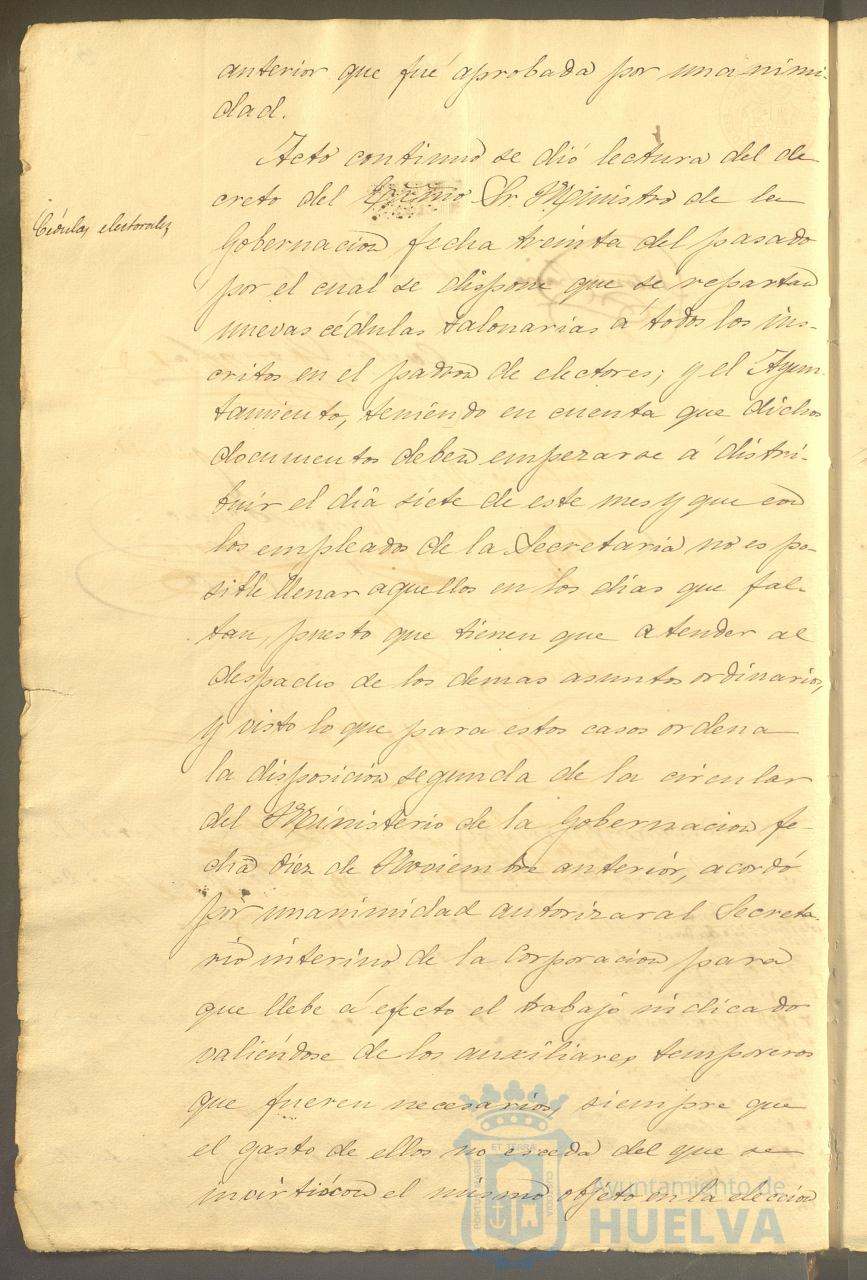 anterior que fué aprobada por unanimi-
dad.
Acto continuo se dió lectura del de
creto del Excmo Sr Ministro de la
Cédulas electorales
Gobernacion fecha treinta del pasado
por el cual se dispone que se repartan
nuevas cédulas talonarias á todos los ins-
critos en el padron de electores; y el Ayun-
tamiento, teniendo en cuenta que dichos
documentos deben empezarse á distri-
buir el dia siete de este mes y que con
los empleados de la Secretaria no es po-
sible llenar aquellos en los dias que fal-
tan, puesto que tienen que atender al
despacho de los demas asuntos ordinarios,
y visto lo que para estos casos ordena
la disposicion segunda de la circular
del Ministerio de la Gobernacion fe-
cha diez de Noviembre anterior, acordó
por unanimidad autorizar al Secreta-
rio interino de la Corporacion para
que llebe á efecto el trabajo indicado
valiéndose de los auxiliares temporeros
que fueren necesarios, siempre que
el gasto de ellos no esceda del que se
invirtió con el mismo objeto en la eleccion
PORTUS MARIS ET TERRÆ CUSTODIA
Ayuntamiento de
HUELVA